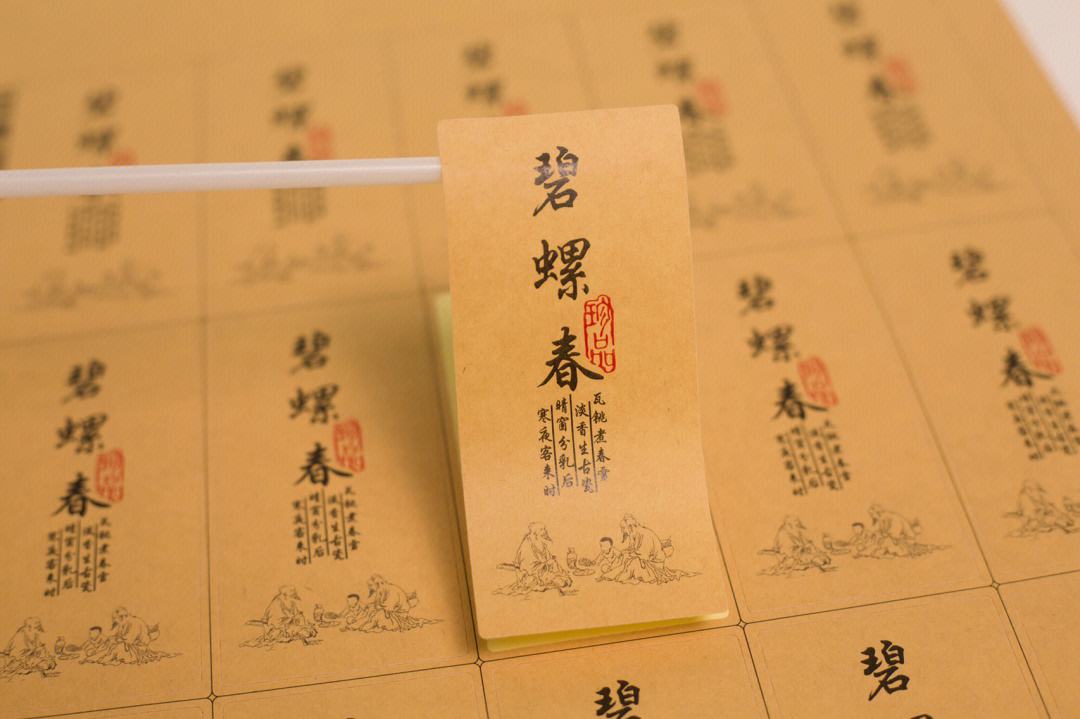 碧螺春
珍品
瓦铫煮春雪
淡香生古瓷
晴窗分乳后
寒夜客来时